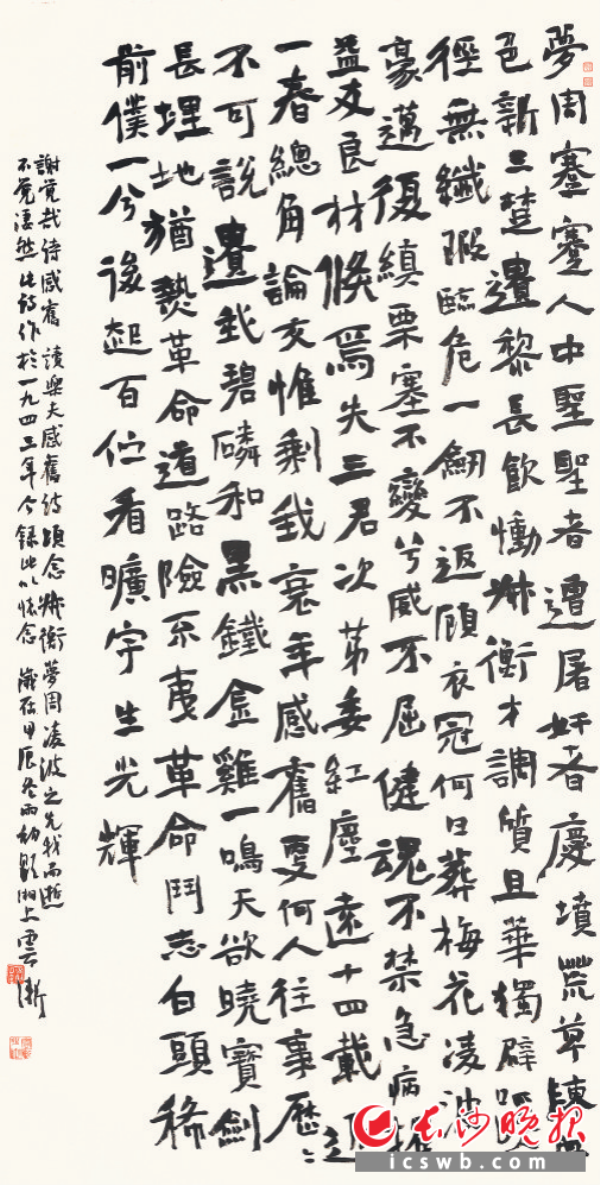 夢周蹇蹇人中聖聖者遭屠奸者慶墳荒草陳
色新三楚遺黎長飲慟淋衡才調質且華獨辟蹊
徑無纖瑕臨危一劒不返顧衣冠何日葬梅花凌波
豪邁復縝栗塞不變兮威不屈健魂不禁急病摧
益友良材倏焉失三君次第委紅塵遠十四載近
一春總角論交惟剩我衰年感舊更何人往事歷〻
不可說遺我碧磷和黑鐵金雞一鳴天欲曉寶劍
長埋地猶熱革命道路險不夷革命鬥志白頭稀
前僕一兮後起百佇看曠宇生光輝
謝覺哉詩感舊 讀樂天感舊詩頃念淋衡夢周凌波之先我而逝
不覺淒然 此詩作於一九四三年今錄此以懷念 歲在甲辰冬雨初影湘上雲漸
長沙晚报
icswb.com